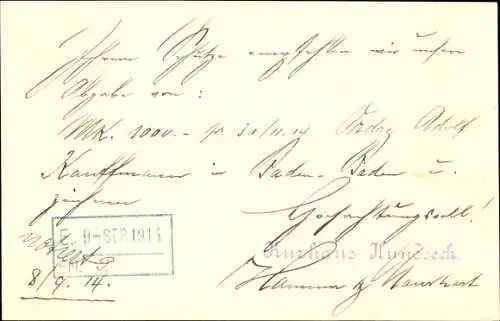 Ihrem Schutze empfehlen wir unsere
Abgabe von:
Mk. 1000.- pr 30/11.14 Ordre Adolf
Kauffmann in Baden-Baden u.
zeichnen
Hochachtungsvoll!
Kurhaus Hundseck.
Hammer &
notiert
E. 9-SEP.1914
8/9. 14.